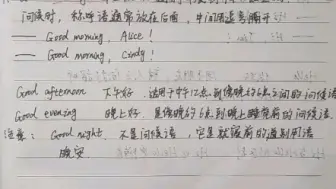 问候时，称呼语通常放在后面，中间用逗号隔开
—— Good morning, Alice!
—— Good morning, Cindy!
Good afternoon 下午好 适用于中午12点到傍晚约6点之间的问候语
Good evening 晚上好 是傍晚约6点到晚上睡觉前的问候语.
注意： Good night 不是问候语，它是就寝前的道别用语
晚安